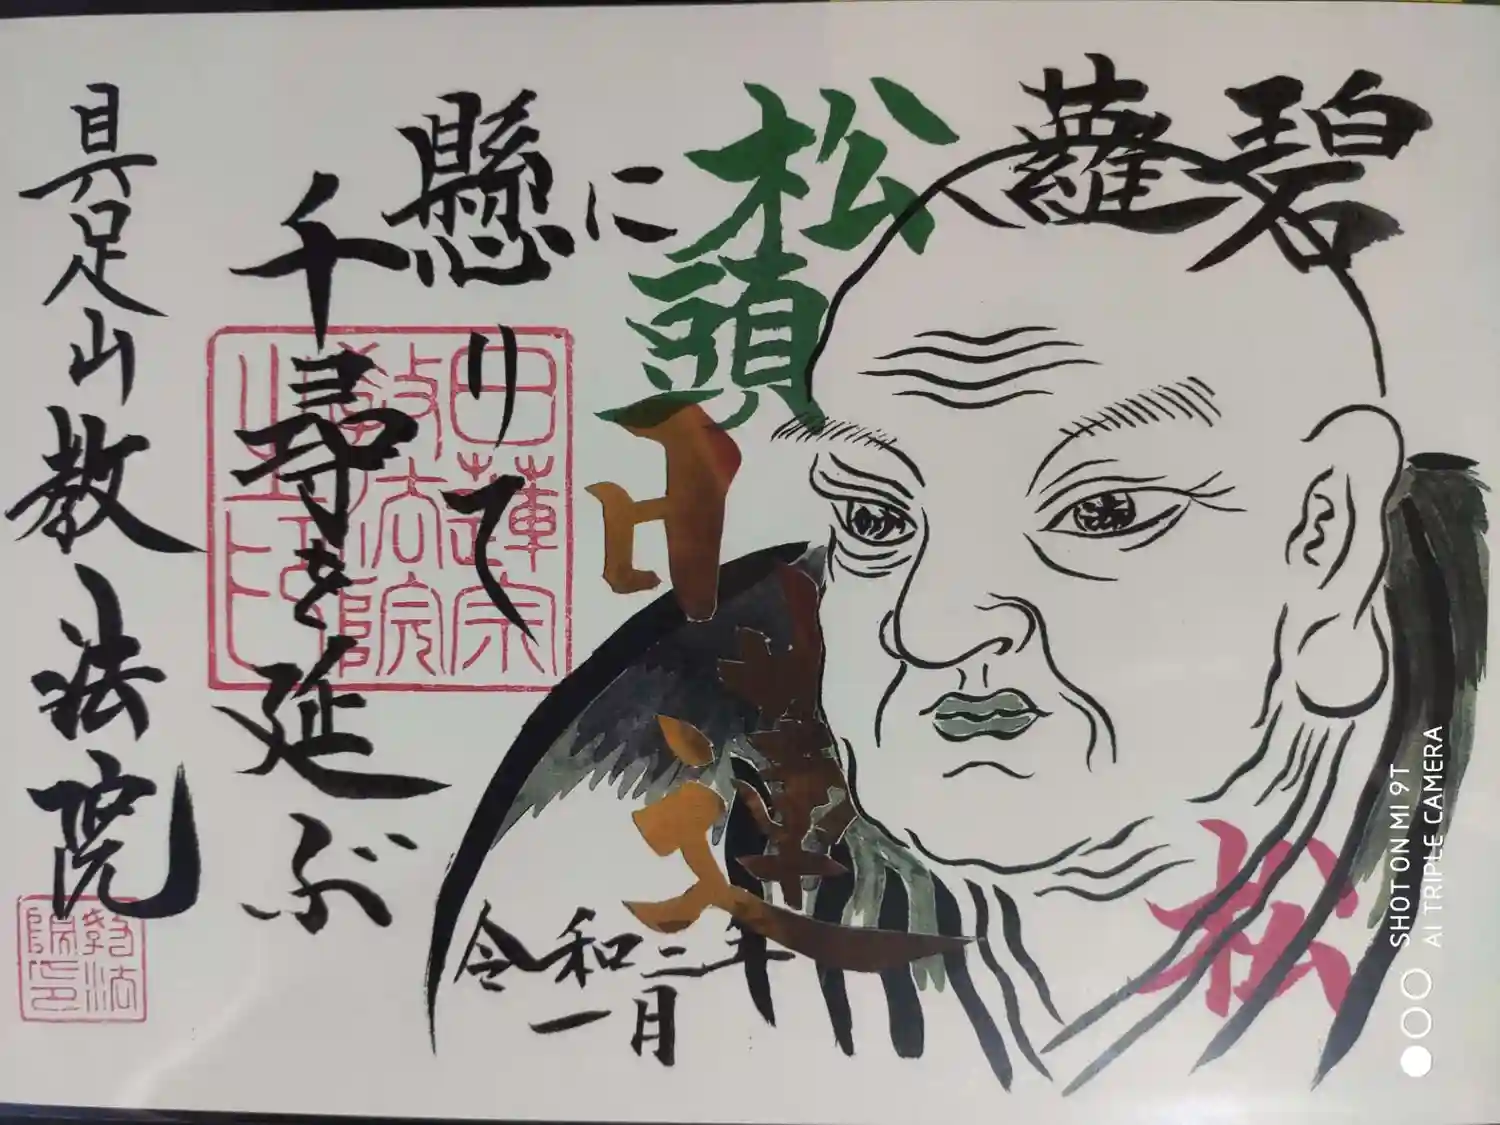 碧蘿
松頭に
懸りて
千尋を延ぶ
日蓮
松
令和二年
一月
具足山教法院
日蓮宗
教法院
教法
院印
SHOT ON MI 9T
AI TRIPLE CAMERA